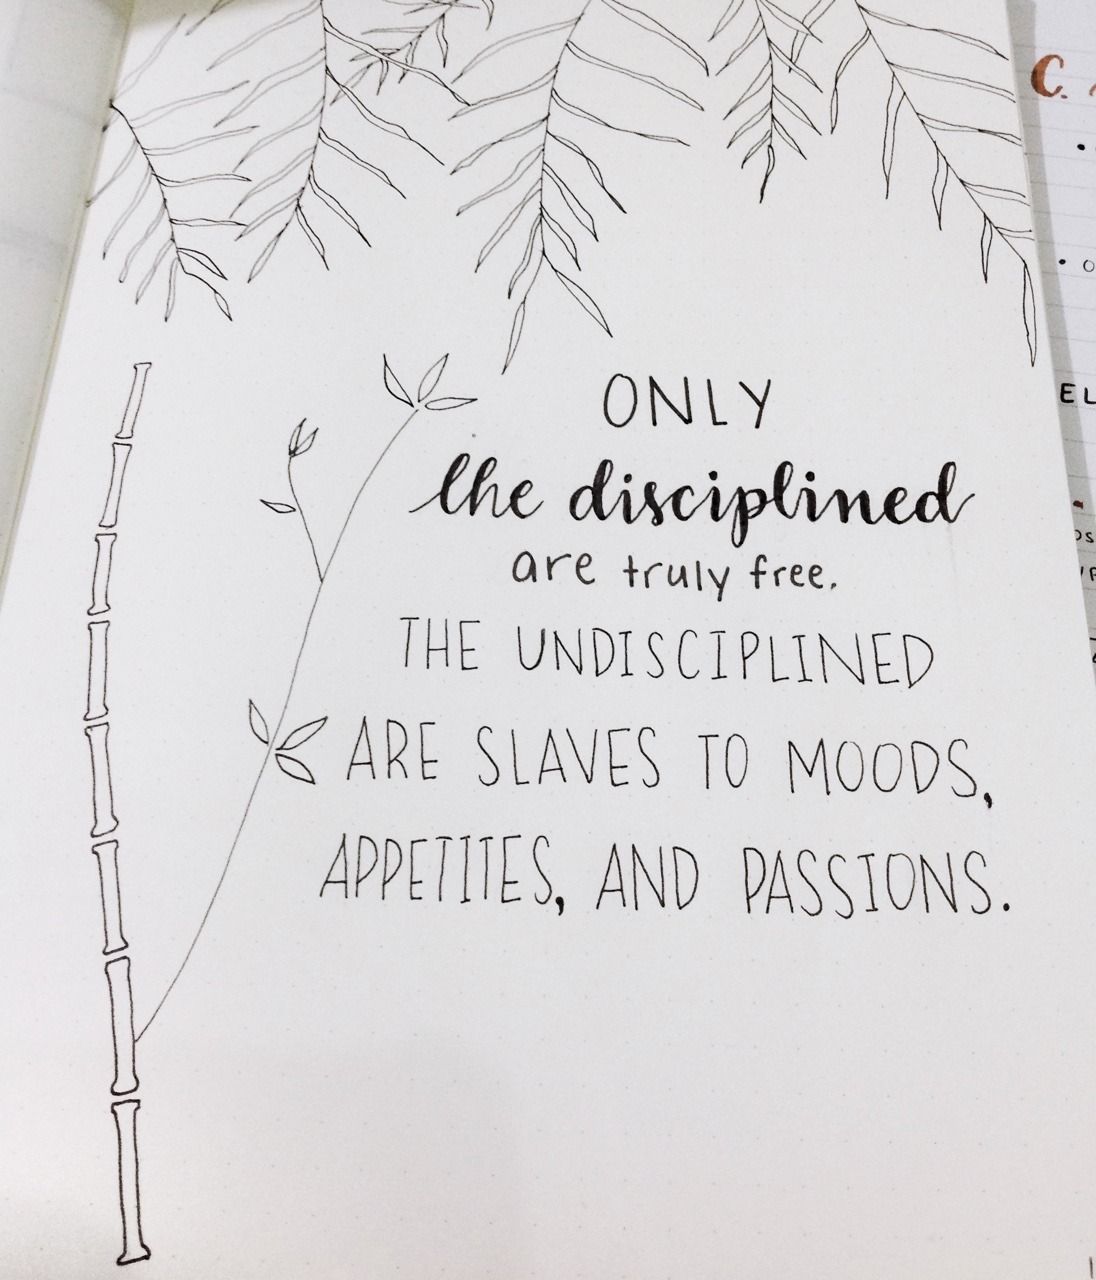 ONLY
the disciplined
are truly free.
THE UNDISCIPLINED
ARE SLAVES TO MOODS,
APPETITES, AND PASSIONS.
C.
EL